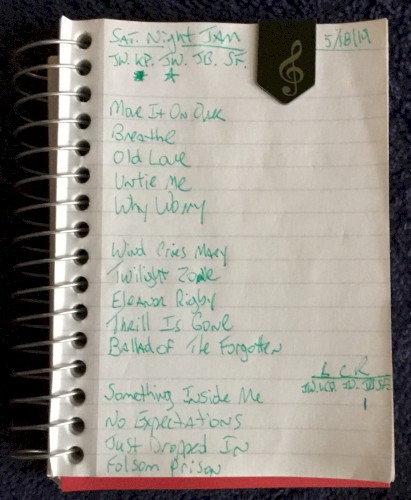 SAT. Night JAM
5/18/19
JW. KP. JW. JB. SF.
Move It On Over
Breathe
Old Love
Untie Me
Why Worry
Wind Cries Mary
Twilight Zone
Eleanor Rigby
Thrill Is Gone
Ballad of The Forgotten
L C R
JW. KP. JW. JB. SF.
1
Something Inside Me
No Expectations
Just Dropped In
Folsom Prison